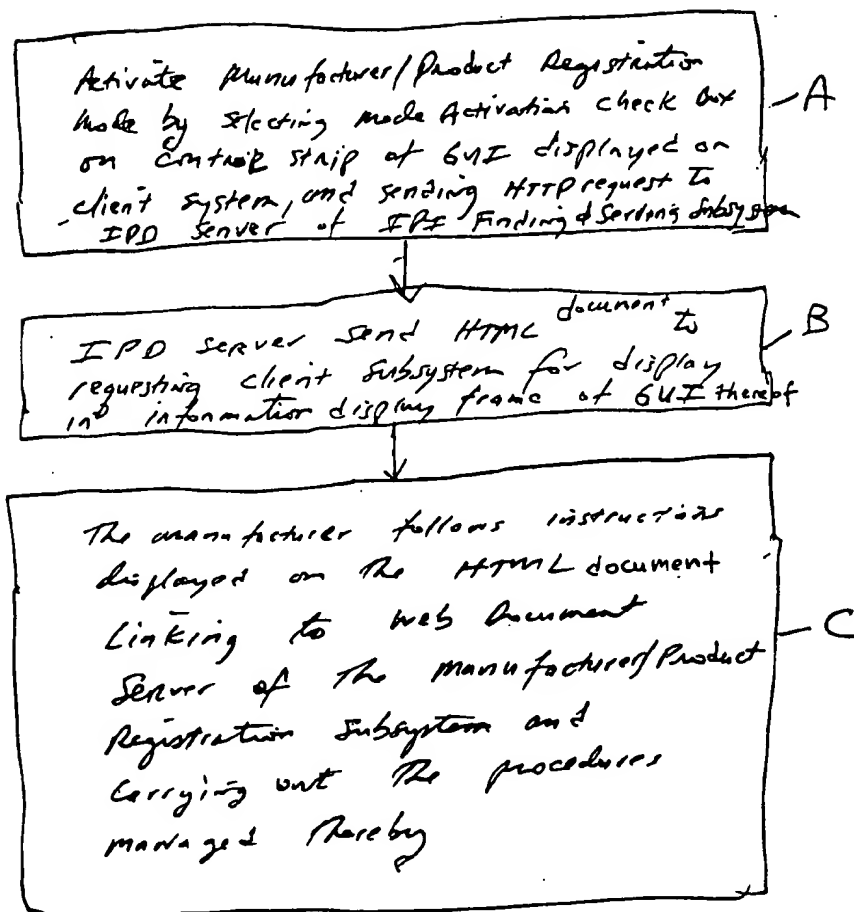 Activate Manufacturer/Product Registration
Mode by selecting Mode Activation check box
on control strip of GUI displayed on
client system, and sending HTTP request to
IPD server of IPI Finding & Serving Subsystem
A
IPD server send HTML document to
requesting client Subsystem for display
in information display frame of GUI thereof
B
The manufacturer follows instructions
displayed on the HTML document
Linking to web Document
Server of the Manufacturer/Product
Registration Subsystem and
Carrying out the procedures
managed thereby
C